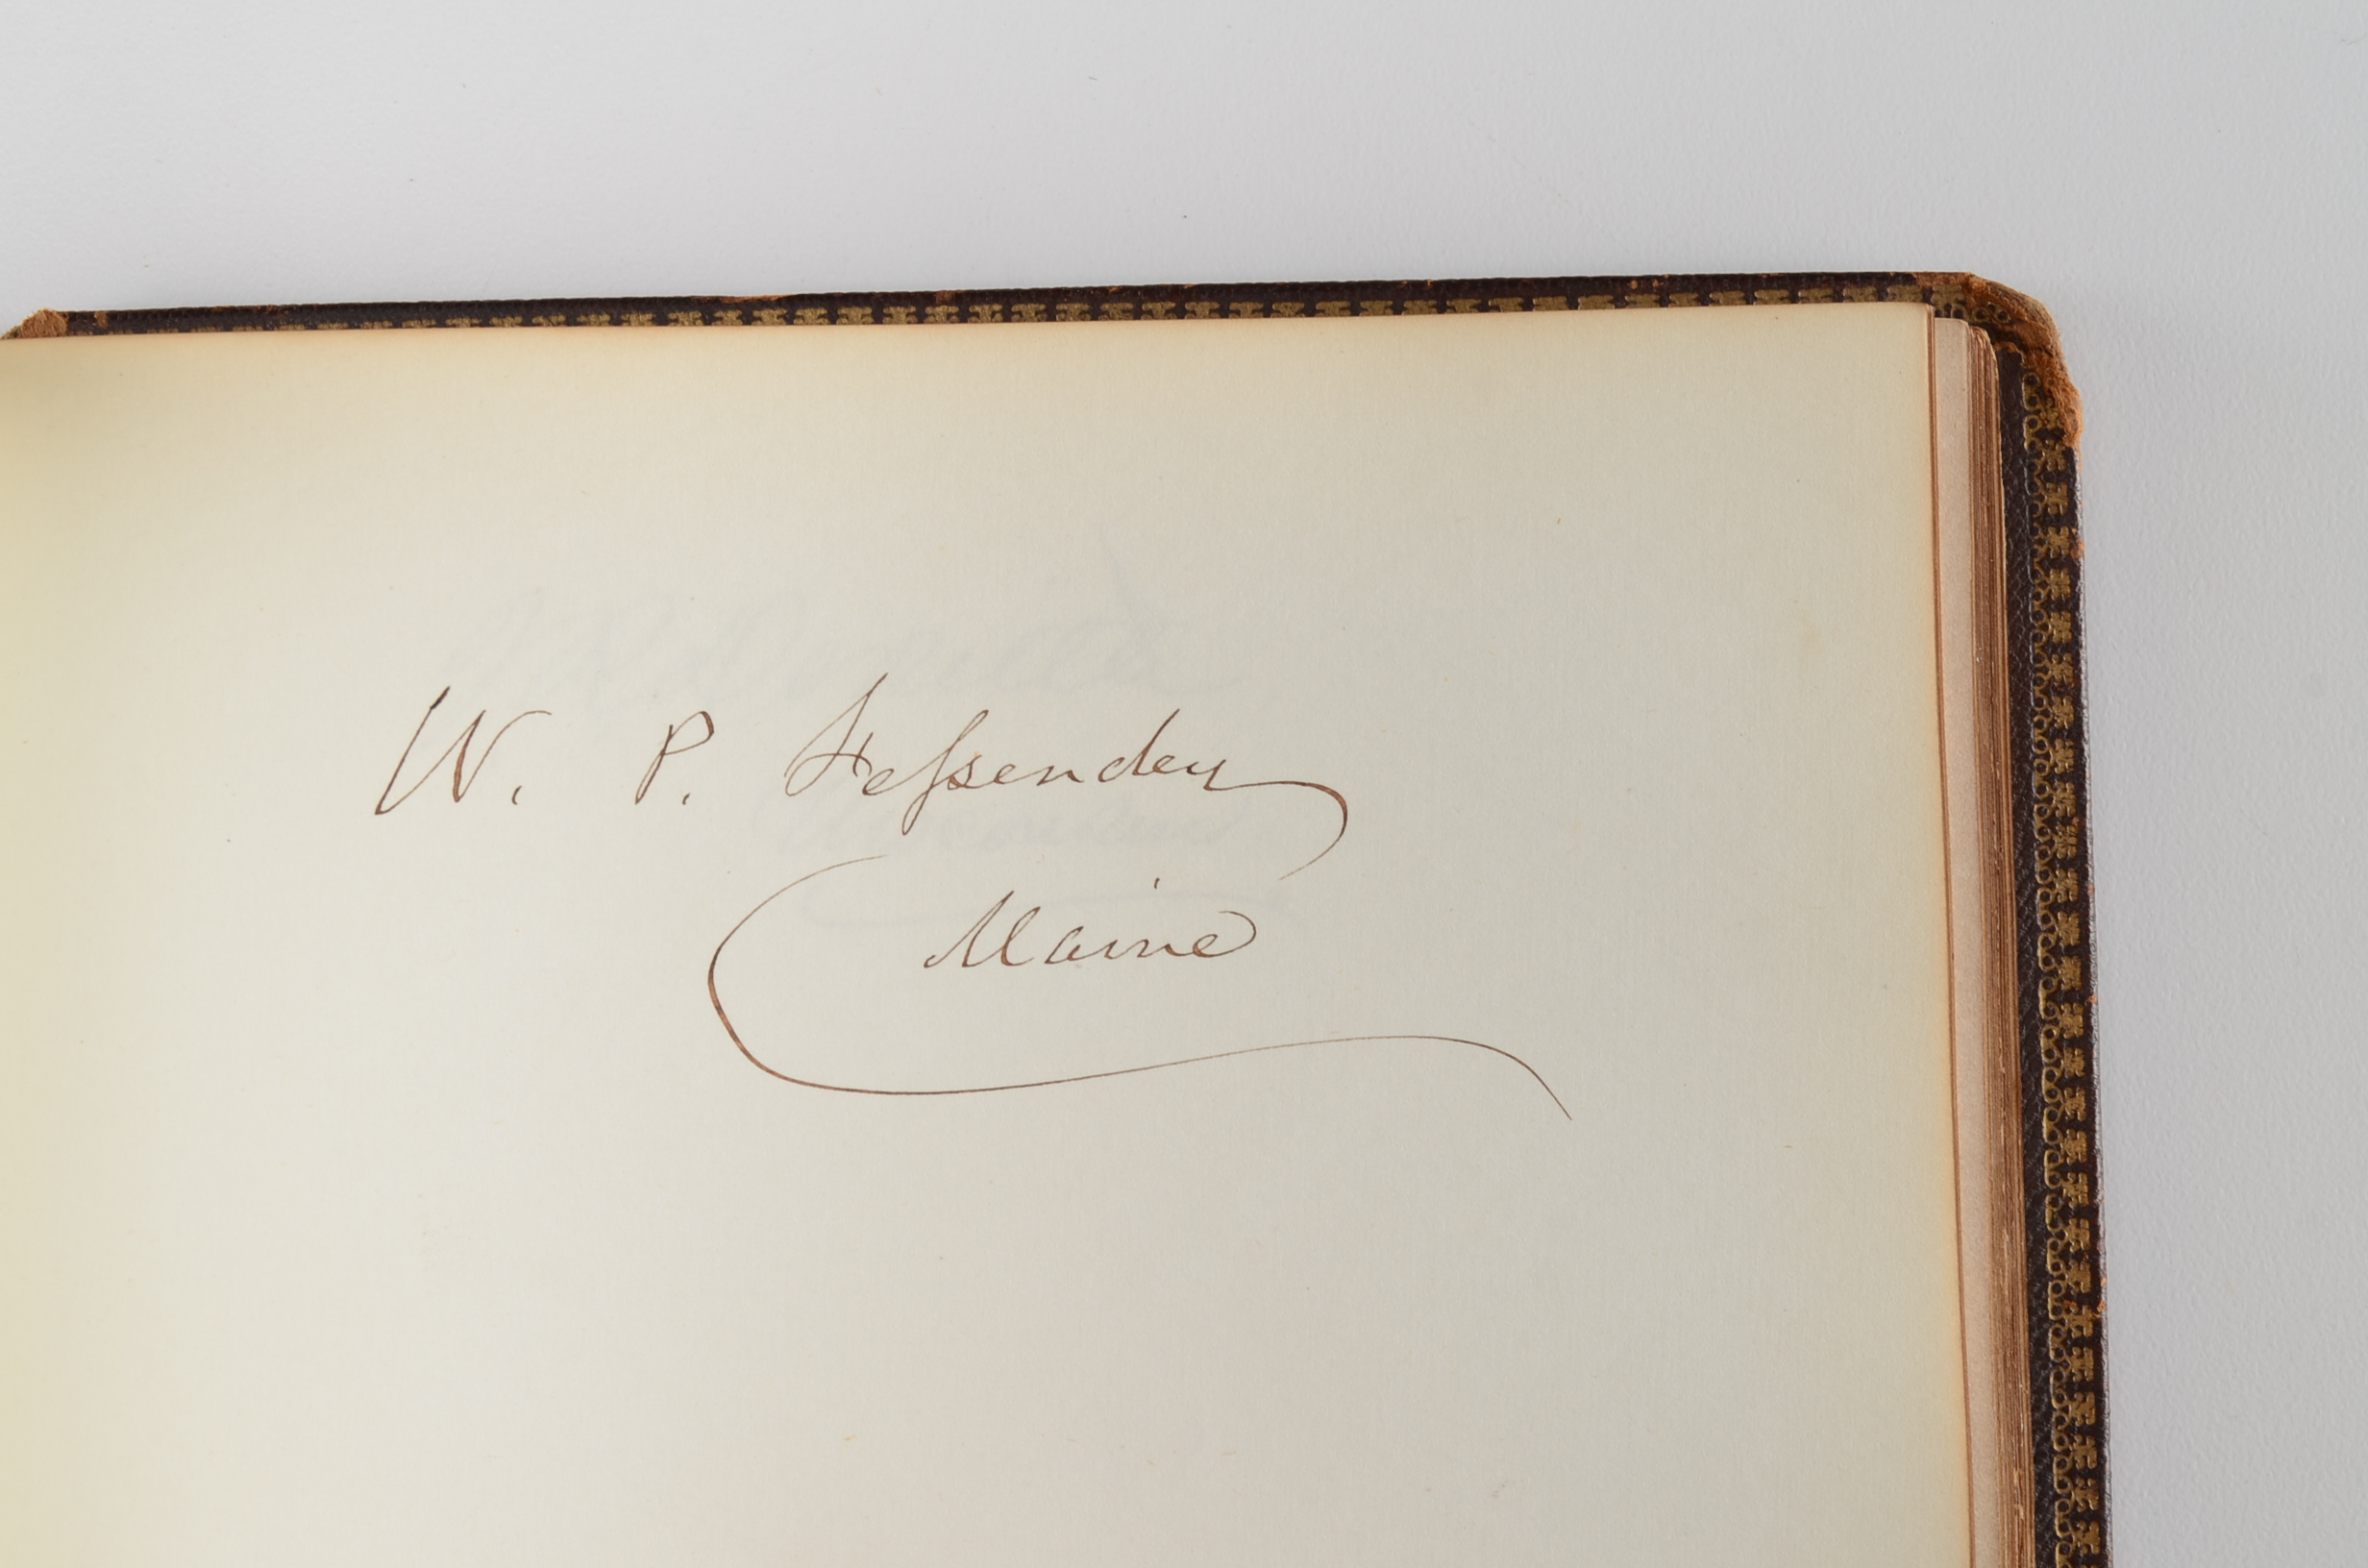 W. P. Fessenden
Maine